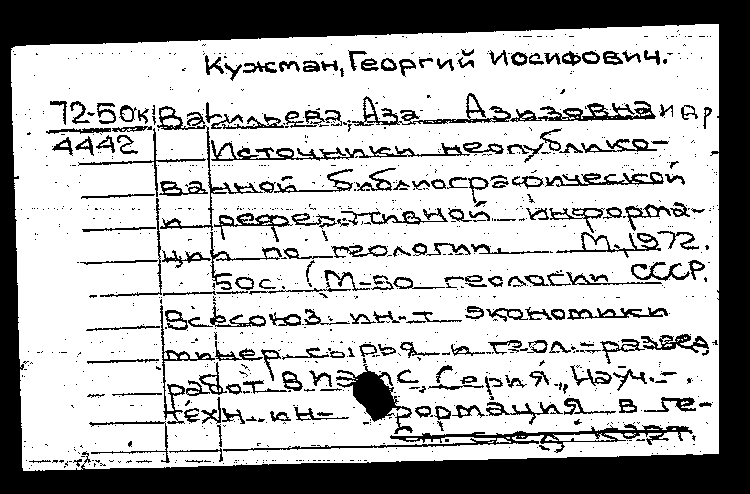 Кужман, Георгий Иосифович.
72-50к Васильева, Аза Азизовна и др.
4442 Источники неопублико-
ванной библиографической
и реферативной информа-
ции по геологии. М., 1972.
50с. (М-во геологии СССР.
Всесоюз. ин-т экономики
минер. сырья и геол.-развед.
работ. ВИЭМС. Серия „Науч.-
техн. ин-формация в ге-
См. след. карт.